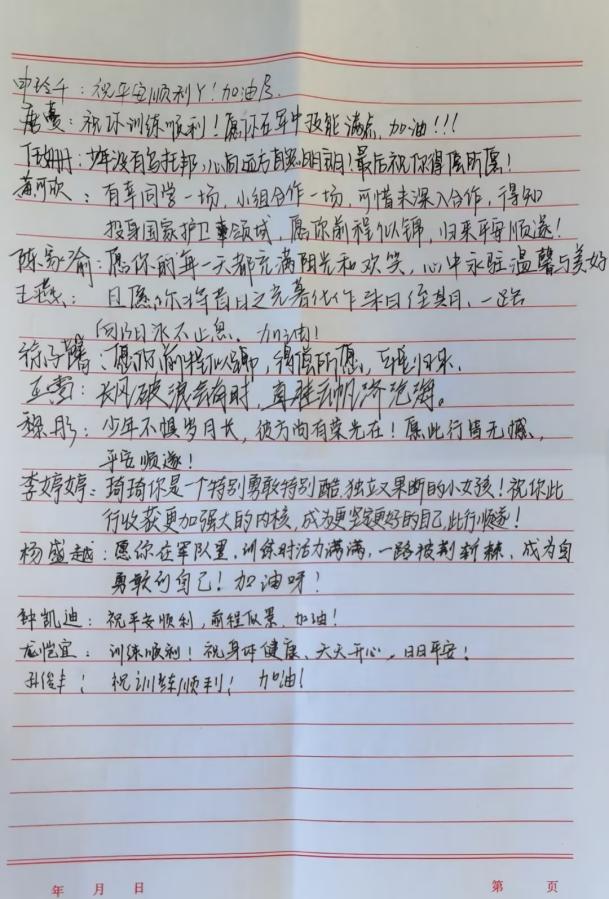 申玲千：祝平安顺利丫！加油尽.
唐蔓：祝你训练顺利！愿你在军中技能满点，加油！！！
任姗珊：少年没有乌托邦，心向远方自然明朗！最后祝你得偿所愿！
黄可欣：有幸同学一场，小组合作一场，可惜未深入合作，得知
投身国家护卫事领域，愿你前程似锦，归来平安顺遂！
陈家瑜：愿你的每一天都充满阳光和欢笑，心中永驻温馨与美好
王燕：且愿你将昔日之完善化作来日佳期，一路
向阳永不止息。加油！
徐子馨：愿你前程似锦，得偿所愿，平安归来.
王雪：长风破浪会有时，直挂云帆济沧海。
穆彤：少年不惧岁月长，彼方尚有荣光在！愿此行皆无憾、
平安顺遂！
李婷婷：琦琦你是一个特别勇敢特别酷，独立又果断的小女孩！祝你此
行收获更加强大的内核，成为更坚定更好的自己，此行顺遂！
杨盛越：愿你在军队里，训练时活力满满，一路披荆斩棘，成为自
勇敢的自己！加油呀！
钟凯迪：祝平安顺利，前程似景，加油！
龙恺宜：训练顺利！祝身体健康、天天开心，日日平安！
孙俊丰！祝训练顺利！ 加油！
年 月 日 第 页